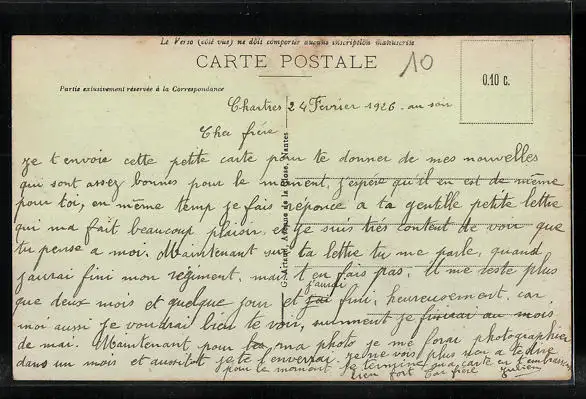 Le Verso (côté vue) ne doit comporter aucune inscription manuscrite
CARTE POSTALE
10
0.10 c.
Partie exclusivement réservée à la Correspondance
Chartres 24 Février 1926. au soir
Cher frère
Je t'envoie cette petite carte pour te donner de mes nouvelles
qui sont assez bonnes pour le moment, j'espère qu'il en est de même
pour toi, en même temp je fais réponce a ta gentille petite lettre
qui ma fait beaucoup plaisir, et je suis très content de voir que
tu pense a moi. Maintenant sur ta lettre tu me parle, quand
j'aurai fini mon régiment, mais t'en fais pas, il me reste plus
j'aurai
que deux mois et quelque jour et j'ai fini, heureusement, car
moi aussi je voudrai bien te voir, je finirai au mois
de mai. Maintenant pour ma photo je me ferai photographier
dans un mois et aussitot je te l'enverrai. je ne vois plus rien a te dire
pour le moment je termine ma carte en t'embrassant
bien fort ton frère Julien
G. Artaud, Avenue de la Close, Nantes